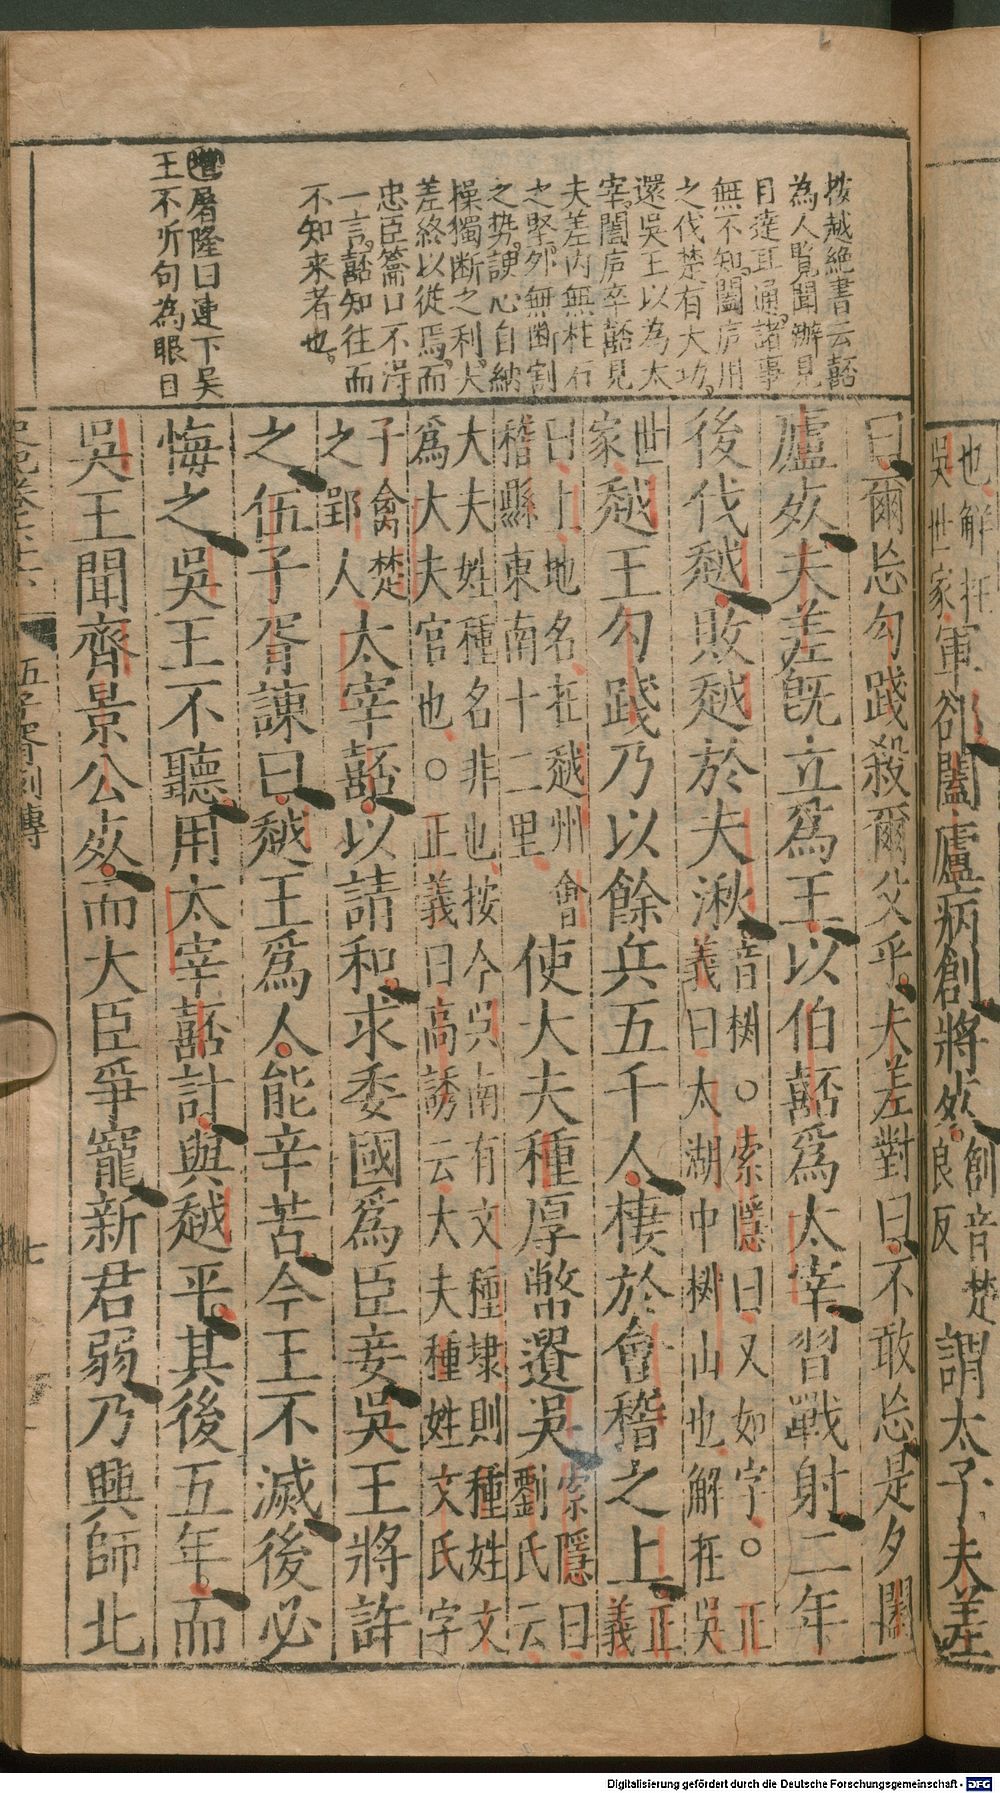 也解在
吳世家軍卻闔廬病創將死創音楚
良反謂太子夫差
按越絕書云嚭
為人覧聞辦見
目達耳通諸事
無不知闔庐用
之伐楚有大功
還吳王以為太
宰闔庐卒嚭見
夫差内無柱石
之堅外無断割
之势諛心自納
操獨断之利夫
差終以従焉而
忠臣籥口不淂
一言嚭知往而
不知来者也
增屠隆曰連下吳
王不听句為眼目
曰爾忘勾踐殺爾父乎夫差對曰不敢忘是夕闔
廬死夫差旣立爲王以伯嚭爲太宰習戰射二年
後伐越敗越於夫湫音椒○索隱曰又如字○正
義曰太湖中椒山也解在吳
世
家越王勾踐乃以餘兵五千人棲於會稽之上正
義
曰上地名在越州會
稽縣東南十二里使大夫種厚幣遺吳索隱曰
劉氏云
大夫姓種名非也按今吳南有文種埭則種姓文
爲大夫官也○正義曰高誘云大夫種姓文氏字
子禽楚
之郢人太宰嚭以請和求委國爲臣妾吳王將許
之伍子胥諫曰越王爲人能辛苦今王不滅後必
悔之吳王不聽用太宰嚭計與越平其後五年而
吳王聞齊景公死而大臣爭寵新君弱乃興師北
伍子胥列傳
七
Digitalisierung gefördert durch die Deutsche Forschungsgemeinschaft - DFG